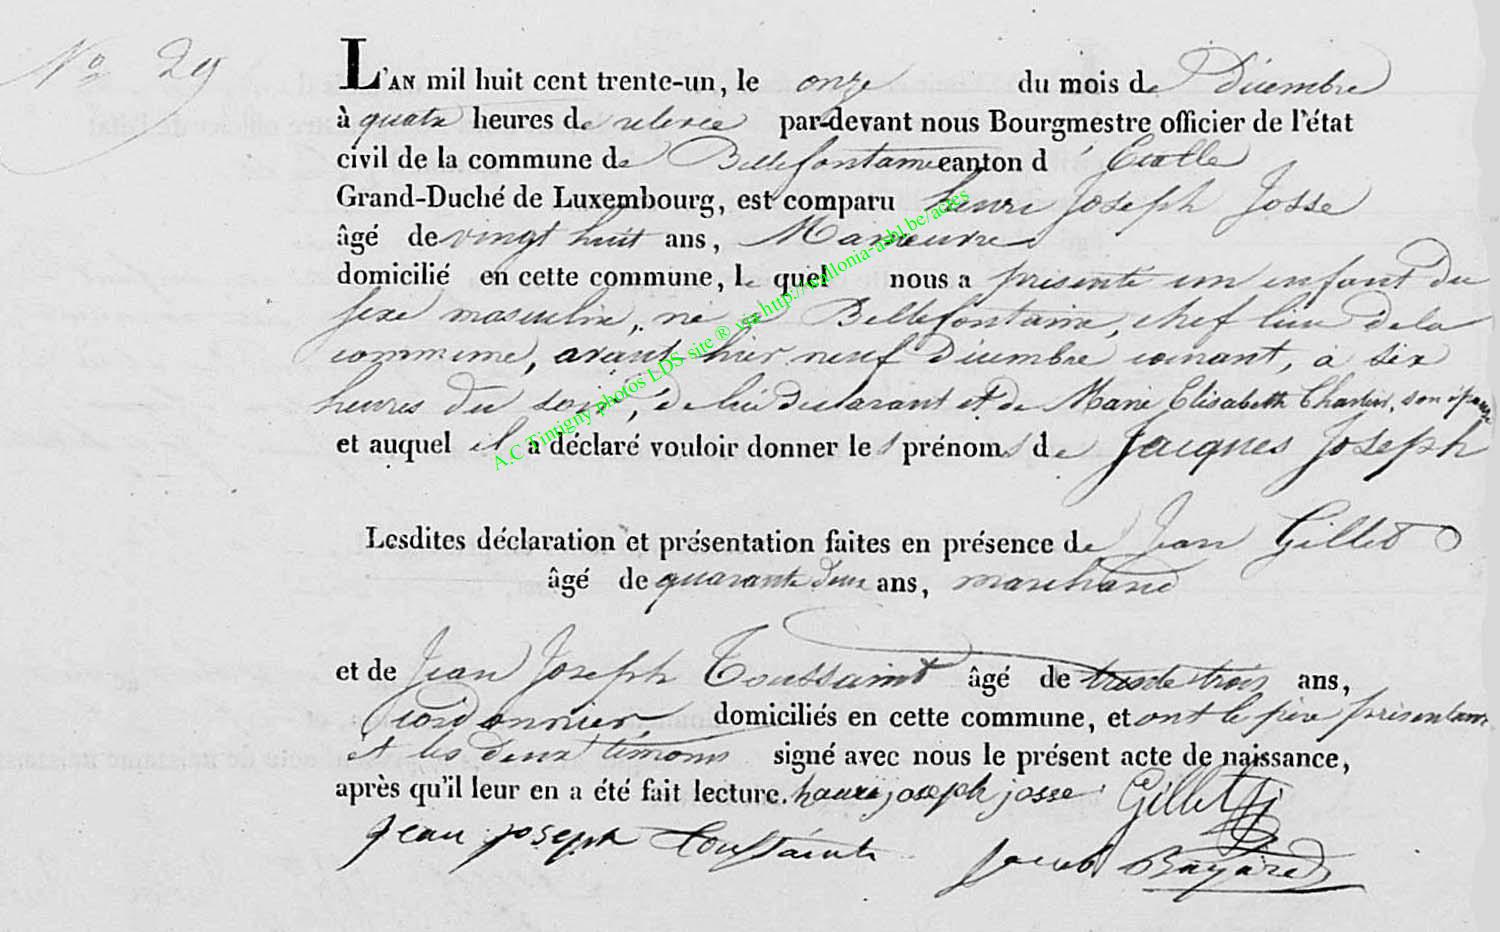 No 29
L'AN mil huit cent trente-un, le onze du mois de Décembre
à quatre heures de relevée par-devant nous Bourgmestre officier de l'état
civil de la commune de Bellefontaine canton d'Etalle
Grand-Duché de Luxembourg, est comparu henri Joseph Josse
âgé de vingt huit ans, Manœuvre
domicilié en cette commune, le quel nous a présenté un enfant du
sexe masculin, né à Bellefontaine, chef lieu de la
commune, avant hier neuf Décembre courant, à six
heures du soir, de lui déclarant et de Marie Elisabeth Charlier, son épouse
et auquel il a déclaré vouloir donner les prénoms de Jacques Joseph
Lesdites déclaration et présentation faites en présence de Jean Gillet
âgé de quarante deux ans, marchand
et de Jean Joseph Toussaint âgé de trente trois ans,
Cordonnier, domiciliés en cette commune, et ont le père présentant
et les deux témoins signé avec nous le présent acte de naissance,
après qu'il leur en a été fait lecture. henri joseph josse Gillet
Jean joseph Toussaint Jacob Bayard
A.C Tintigny photos LDS site ® via http://wallonia-asbl.be/actes